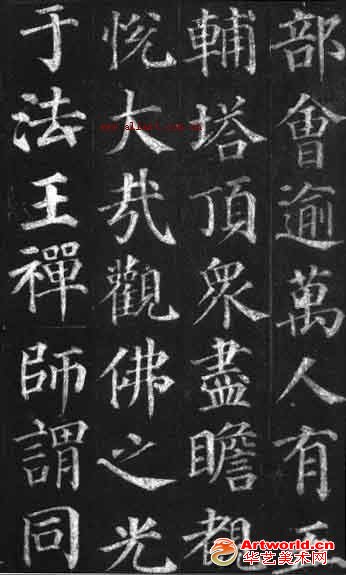 部會逾萬人有五
輔塔頂衆盡瞻覩
悅大哉觀佛之光
于法王禪師謂同
Artworld.cn
华艺美术网